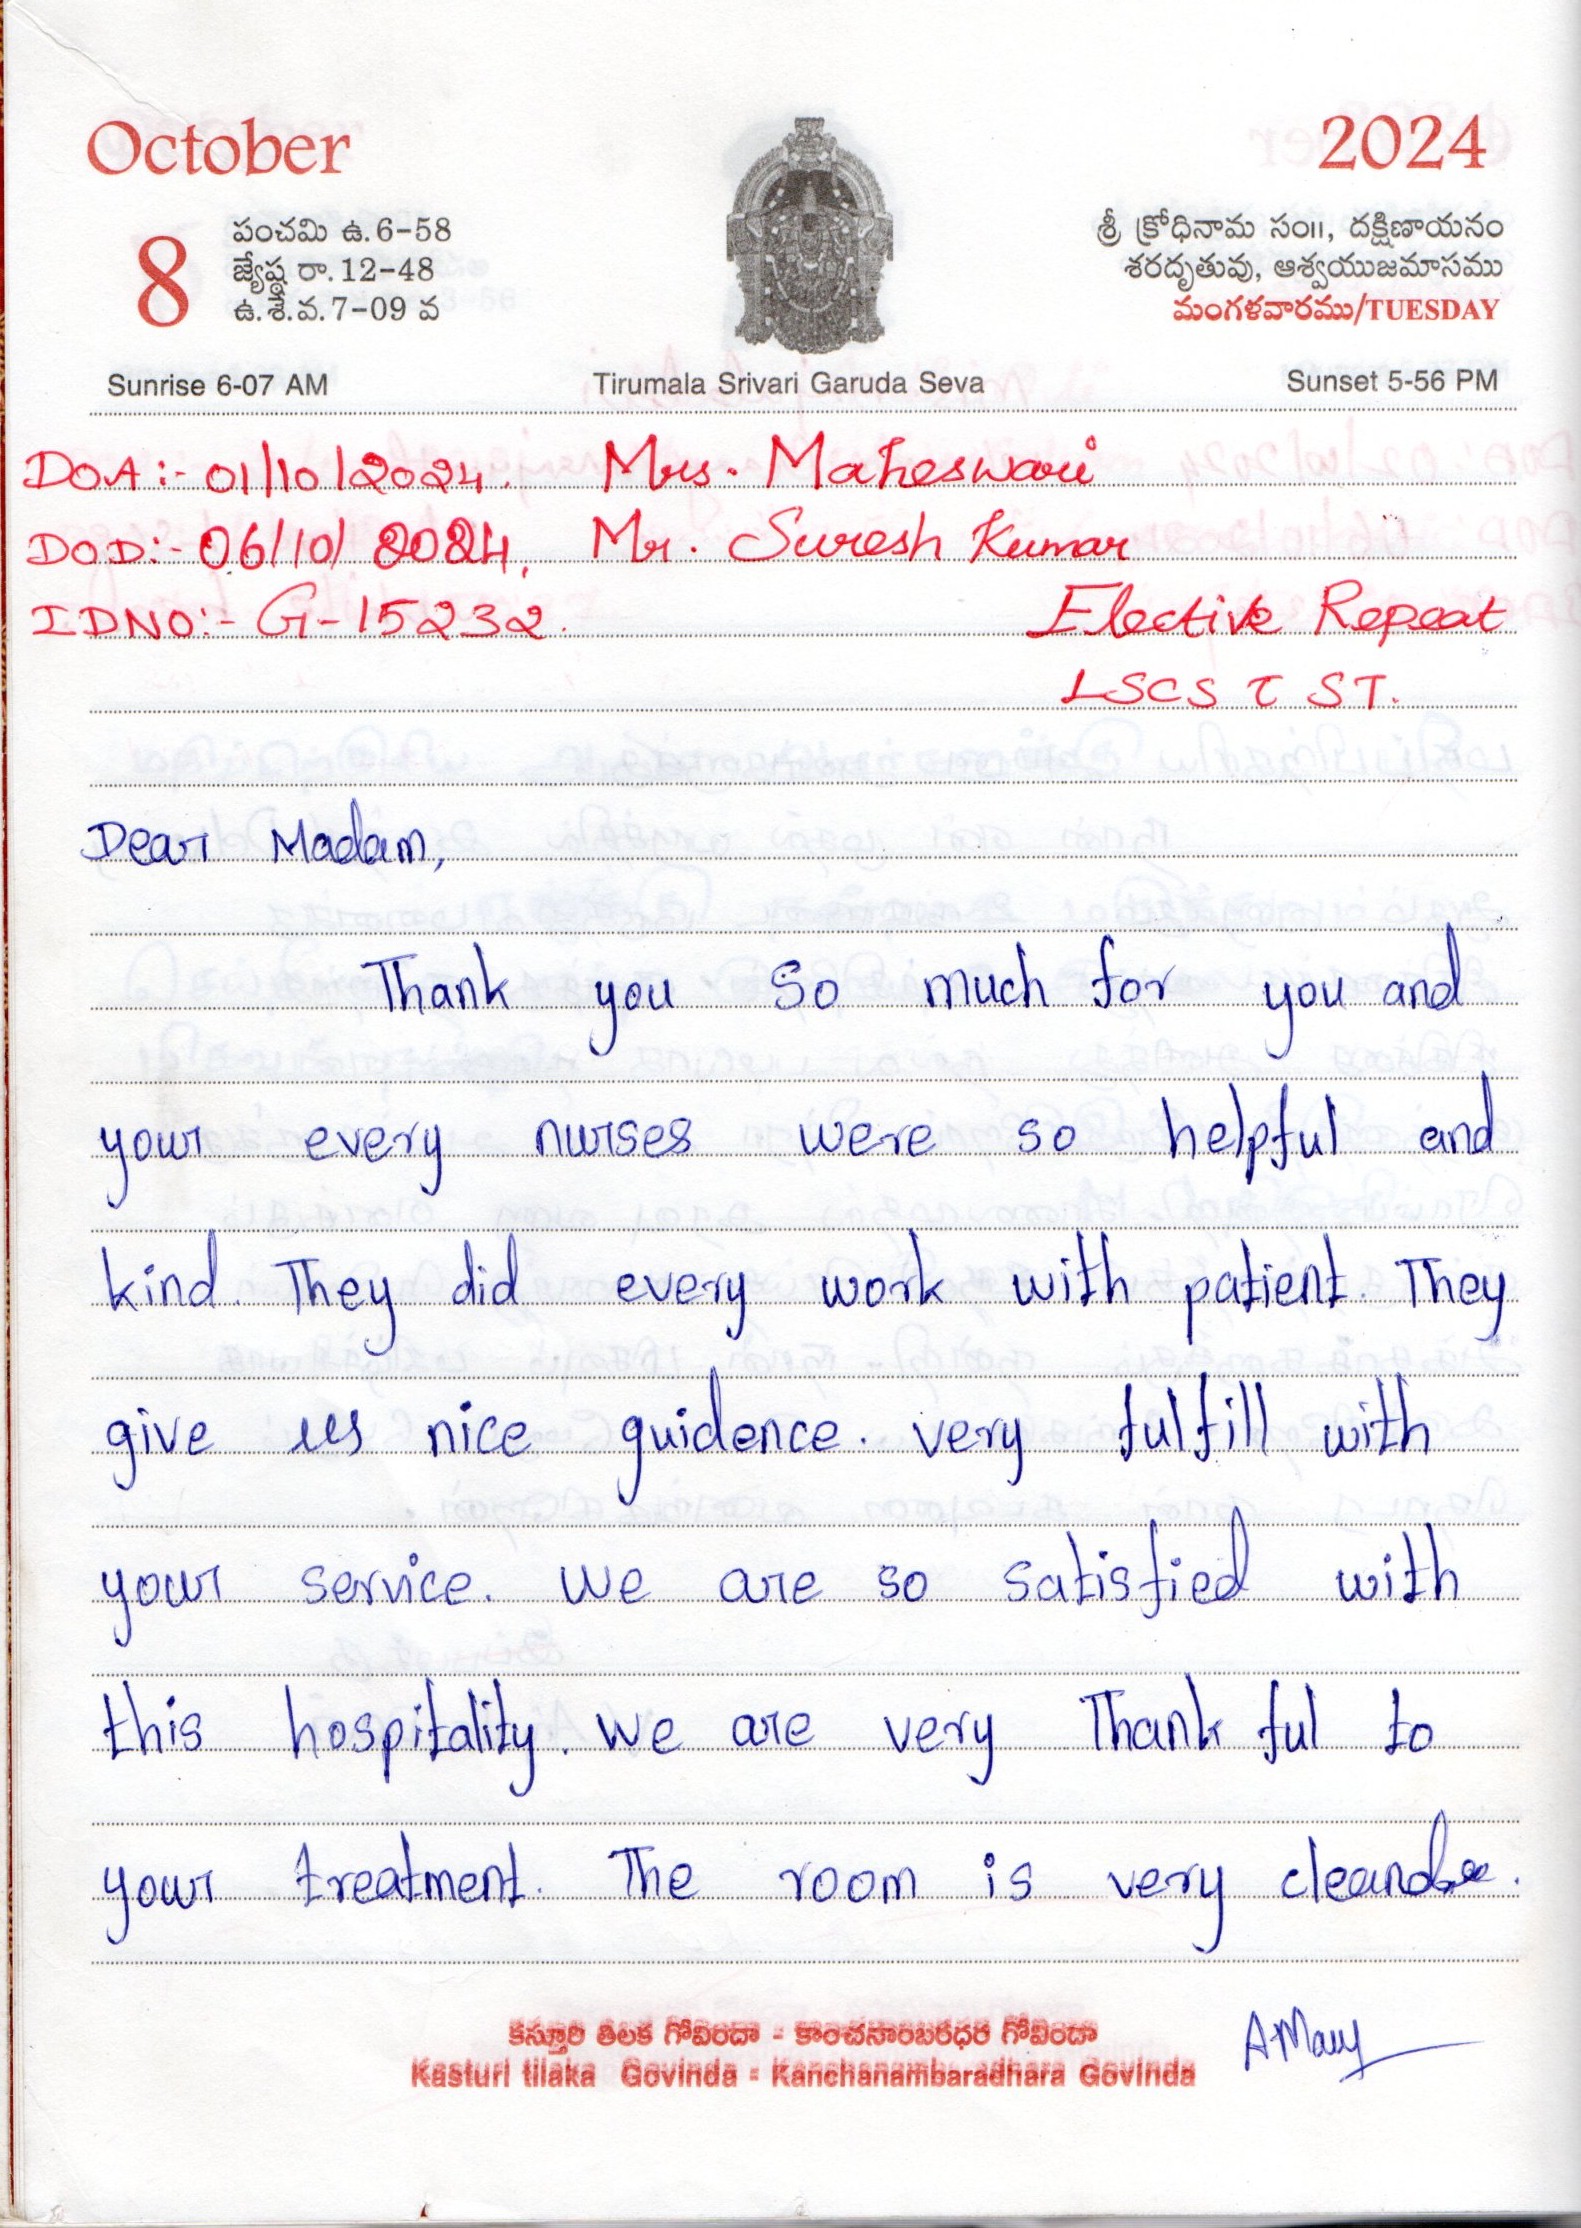 October
2024
8
పంచమి ఉ.6-58
జ్యేష్ఠ రా.12-48
ఉ.శే.వ.7-09 వ
శ్రీ క్రోధినామ సం॥, దక్షిణాయనం
శరదృతువు, ఆశ్వయుజమాసము
మంగళవారము/TUESDAY
Sunrise 6-07 AM
Tirumala Srivari Garuda Seva
Sunset 5-56 PM
DOA:- 01/10/2024. Mrs. Maheswari
DOD:- 06/10/2024, Mr. Suresh Kumar
IDNO:- G-15232. Elective Repeat
LSCS C ST.
Dear Madam,
Thank you so much for you and
your every nurses were so helpful and
kind. They did every work with patient. They
give us nice guidence. very fulfill with
your service. We are so satisfied with
this hospitality. We are very Thank ful to
your treatment. The room is very
కస్తూరి తిలక గోవిందా - కాంచనాంబరధర గోవిందా
Kasturi tilaka Govinda - Kanchanambaradhara Govinda